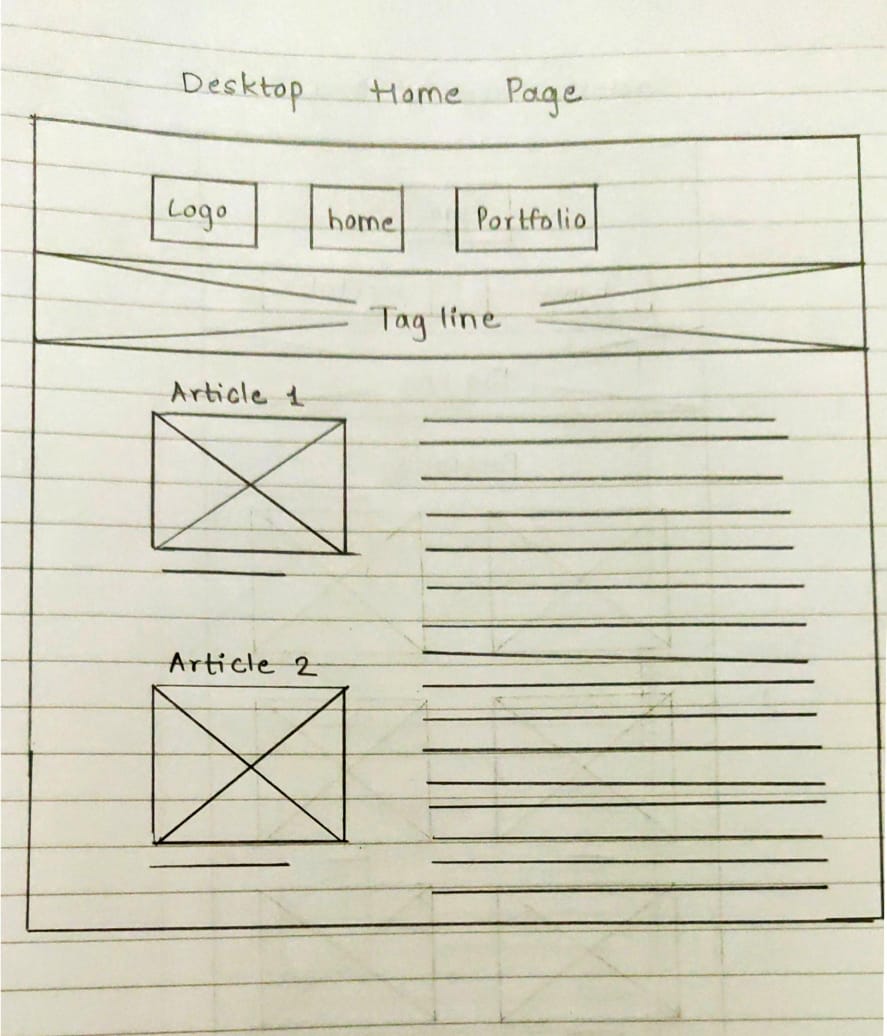 Desktop Home Page
Logo home Portfolio
Tag line
Article 1
Article 2